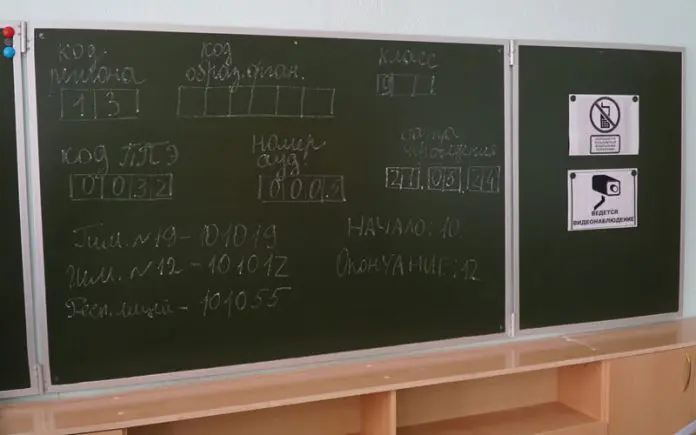 код региона
1 3
код образ.орган.
класс
9
код ППЭ
0 0 3 2
номер ауд
0 0 0 5
дата проведения
27.05.24
Гим. №19 - 101019
гим. №12 - 101012
Респ. лицей - 101055
НАЧАЛО: 10
ОКОНЧАНИЕ: 12
ВЕДЕТСЯ
ВИДЕОНАБЛЮДЕНИЕ